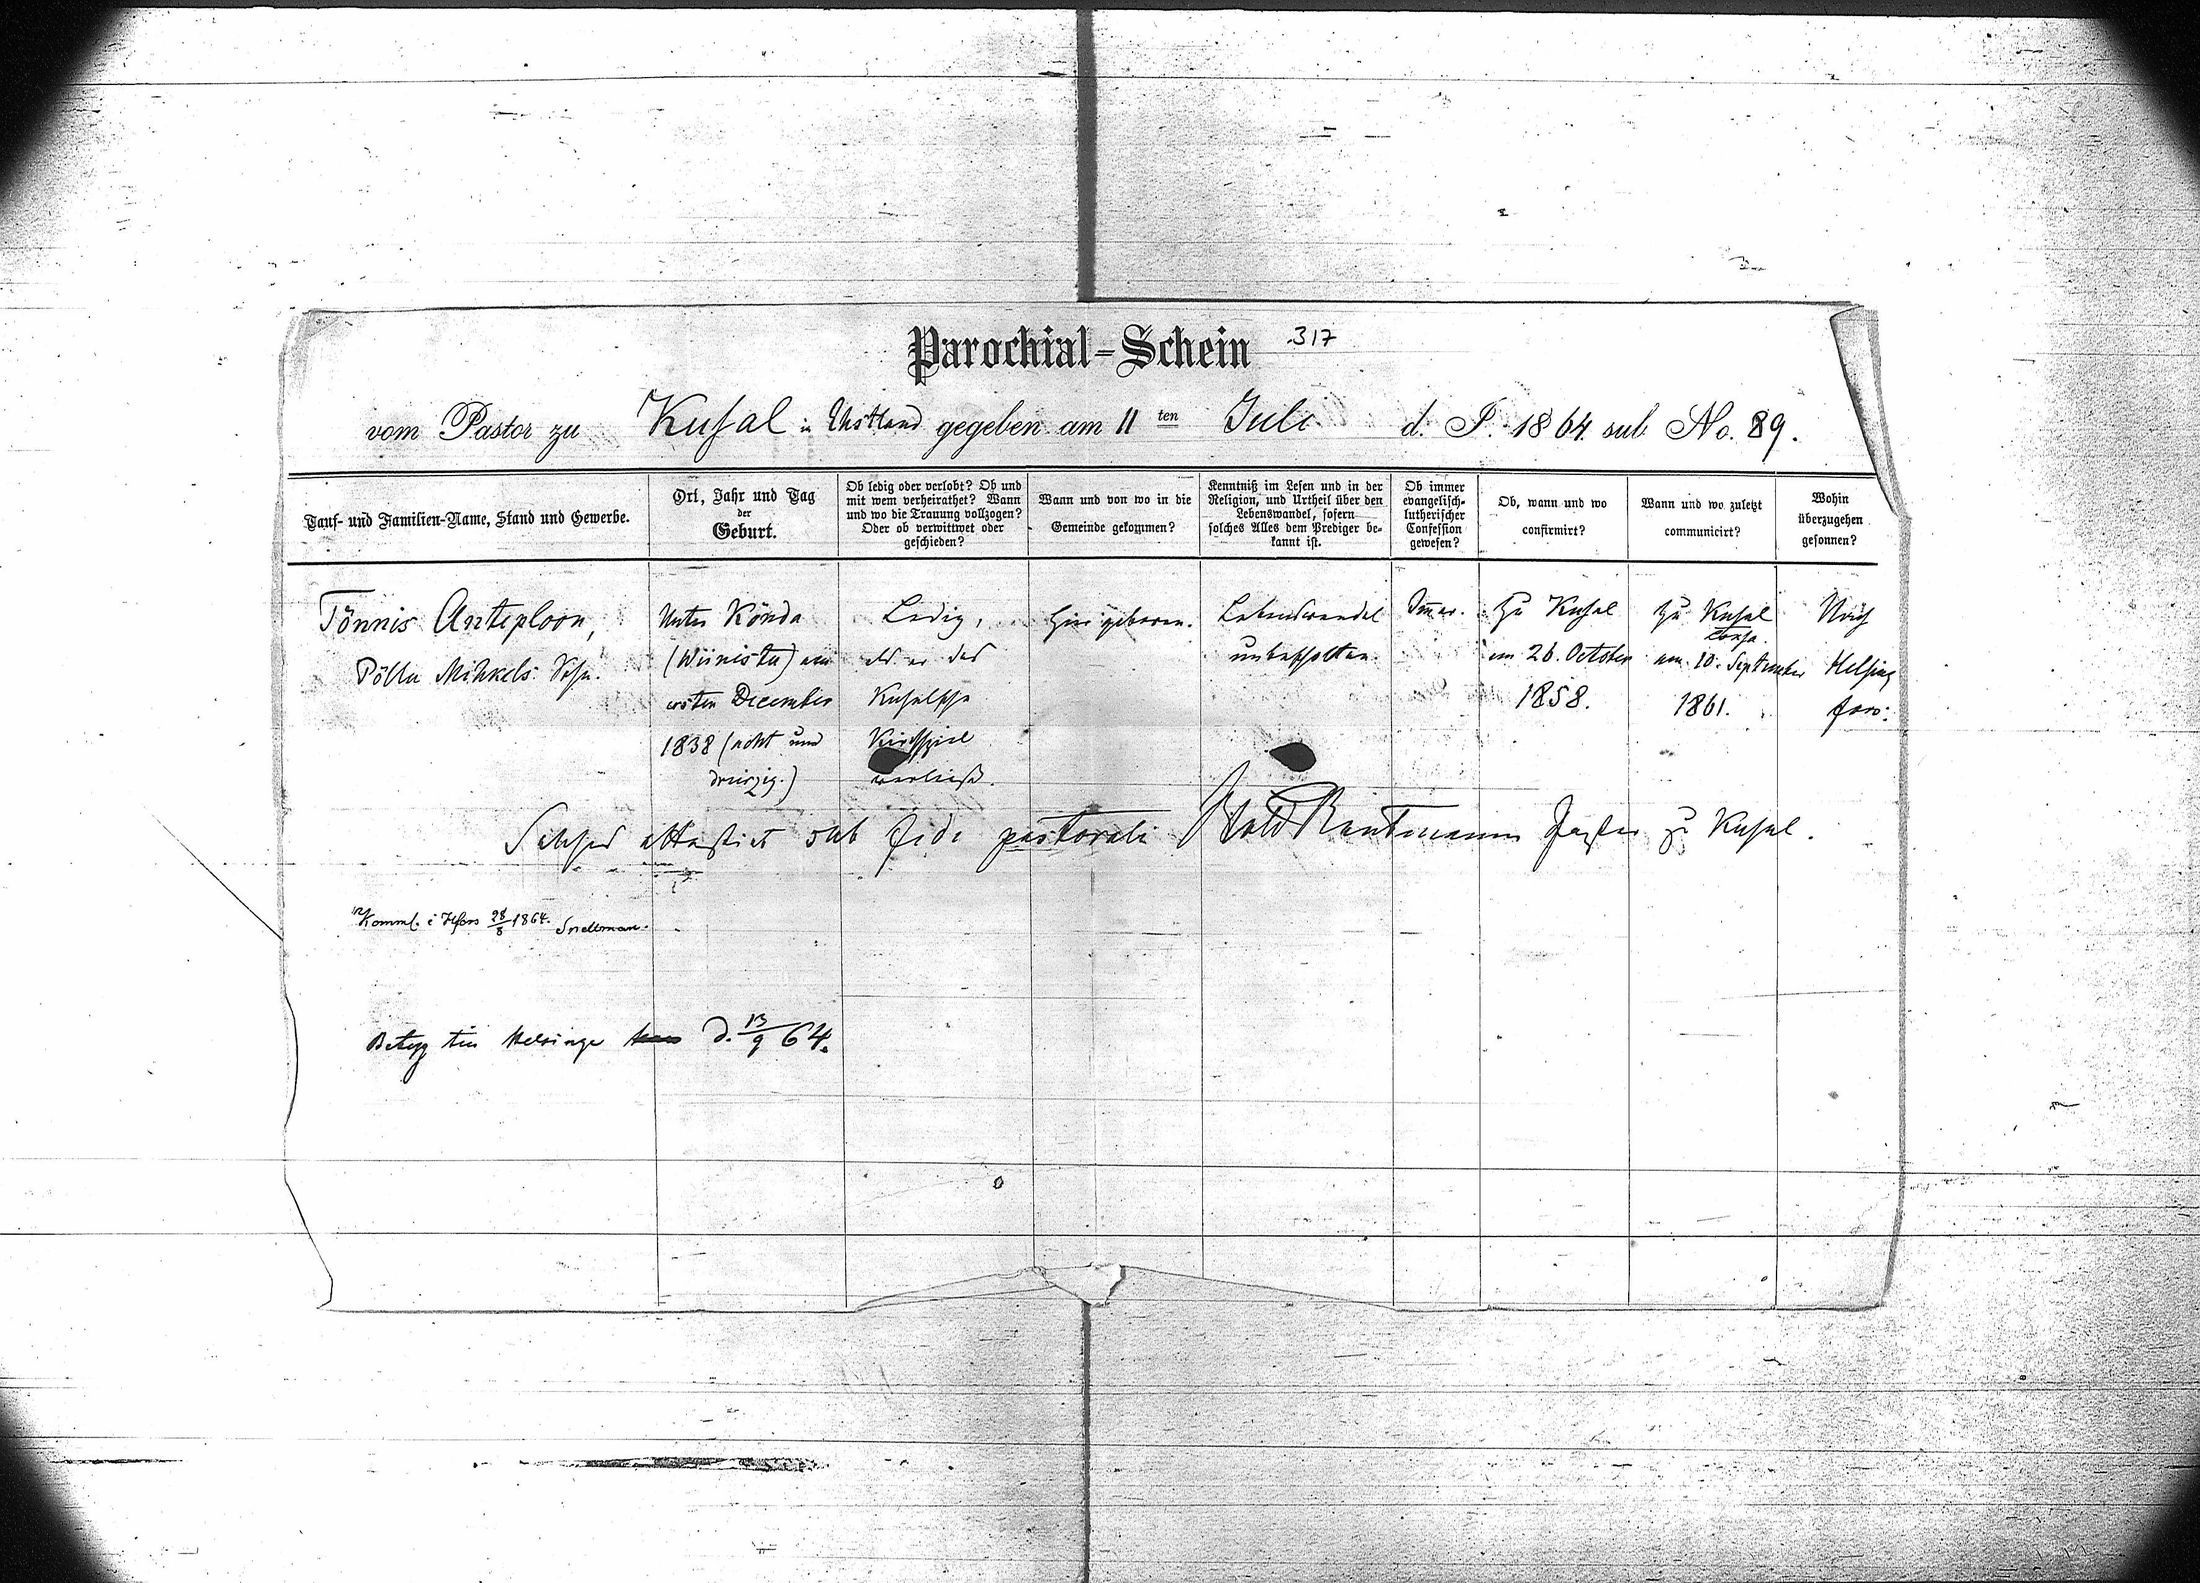 Parochial-Schein 317
vom Pastor zu Kusal in Ehstland gegeben am 11 ten Juli d. J. 1864 sub No. 89.
Tauf- und Familien-Name, Stand und Gewerbe.
Ort, Jahr und Tag
der
Geburt.
Ob ledig oder verlobt? Ob und
mit wem verheirathet? Wann
und wo die Trauung vollzogen?
Oder ob verwittwet oder
geschieden?
Wann und von wo in die
Gemeinde gekommen?
Kenntniß im Lesen und in der
Religion, und Urtheil über den
Lebenswandel, sofern
solches Alles dem Prediger be-
kannt ist.
Ob immer
evangelisch-
lutherischer
Confession
gewesen?
Ob, wann und wo
confirmirt?
Wann und wo zuletzt
communicirt?
Wohin
überzugehen
gesonnen?
Tönnis Anteploon,
Pöllu Mihkels Sohn.
Unter Könda
(Wiinistu) am
ersten December
1838 (acht und
dreißig.)
Ledig,
als er das
Kusalsche
Kirchspiel
verließ.
Hier geboren.
Lebenswandel
unbescholten.
Immer.
Zu Kusal
am 26. October
1858.
Zu Kusal
am 10. September
1861.
Nach
Helsing
fors.
Solches attestirt sub fide pastorali Wold Rantmann Pastor zu Kusal.
Komml. i Hfors 28/8 1864. Snellman.
Betyg till Helsinge d. 13/9 64.